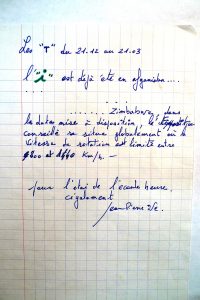 Les "T" du 21.12 au 21.03
l'"i" est déjà été en afganistan....
...
........ Zimbabwe, dans
la data mise à disposition, le
conseillé se situe globalement où la
vitesse de rotation est limité entre
et 1440 Km/h. —
pour l'état de l'écoute heure.
également
Jean Pierre